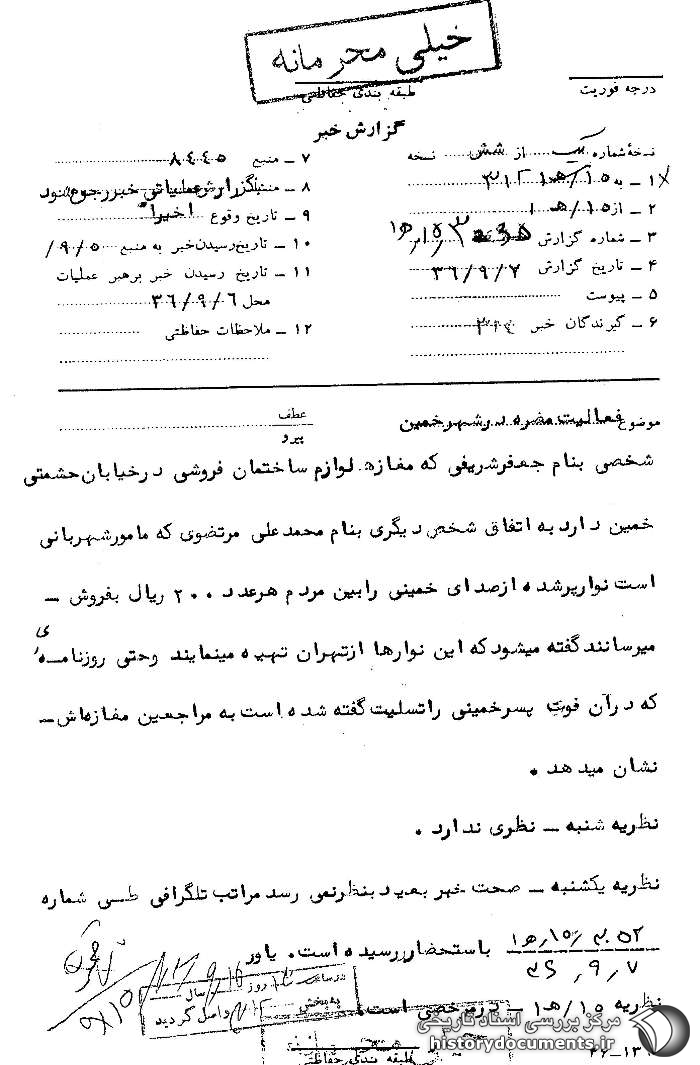 خیلی محرمانه
طبقه بندی حفاظتی
درجه فوریت
گزارش خبر
نسخهٔ شماره یک از شش نسخه
۱ – به ۳۱۲
۲ – از ۱۵/ه‍ ۱
۳ – شماره گزارش
۴ – تاریخ گزارش ۳۶/۹/۷
۵ – پیوست
۶ – گیرندگان خبر
۷ – منبع ۸۴۴۵
۸ – گزارش عملیاتی خبر رجوع شود
۹ – تاریخ وقوع اخیراً
۱۰ – تاریخ رسیدن خبر به منبع ۹/۵/
۱۱ – تاریخ رسیدن خبر برهبر عملیات
محل ۳۶/۹/۶
۱۲ – ملاحظات حفاظتی
موضوع فعالیت مضره در شهر خمین
عطف
پیرو
شخصی بنام جعفر شریفی که مغازه لوازم ساختمان فروشی در خیابان حشمتی
خمین دارد به اتفاق شخص دیگری بنام محمد علی مرتضوی که مامور شهربانی
است نوار پر شده از صدای خمینی را بین مردم هر عدد ۲۰۰ ریال بفروش –
میرسانند گفته میشود که این نوارها از تهران تهیه مینمایند و حتی روزنامه ای
که در آن فوت پسر خمینی را تسلیت گفته شده است به مراجعین مغازه اش –
نشان میدهد .
نظریه شنبه – نظری ندارد .
نظریه یکشنبه – صحت خبر بعید بنظر نمی رسد مراتب تلگرافی طی شماره
۳۰۵۲/۱۵/ه‍ ۱
۳۶/۹/۷
باستحضار رسیده است . یاور
نظریه ۱۵/ه‍ ۱ – است
در ساعت روز
سال
به بخش واصل گردید
طبقه بندی حفاظتی
مرکز بررسی اسناد تاریخی
historydocuments.ir